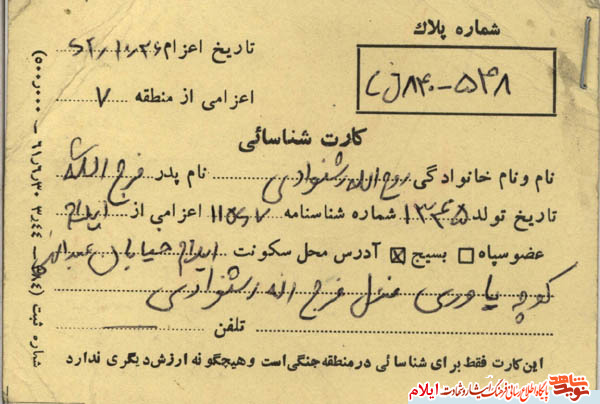 شماره پلاك
۵۴۸-۸۴۰
تاریخ اعزام ۶۲٫۱۰٫۲۶
اعزامی از منطقه ۷
کارت شناسائی
نام و نام خانوادگی روح الله رشنوادی نام پدر فرج الله
تاریخ تولد ۱۳۴۵ شماره شناسنامه اعزامی از ایلام
عضو سپاه بسیج آدرس محل سکونت ایلام خیابان
کوچه یاوری منزل فرج اله رشنوادی
تلفن
این کارت فقط برای شناسائی در منطقه جنگی است و هیچگونه ارزش دیگری ندارد
شماره ثبت
نوید شاهد
پایگاه اطلاع رسانی فرهنگ ایثار و شهادت ایلام